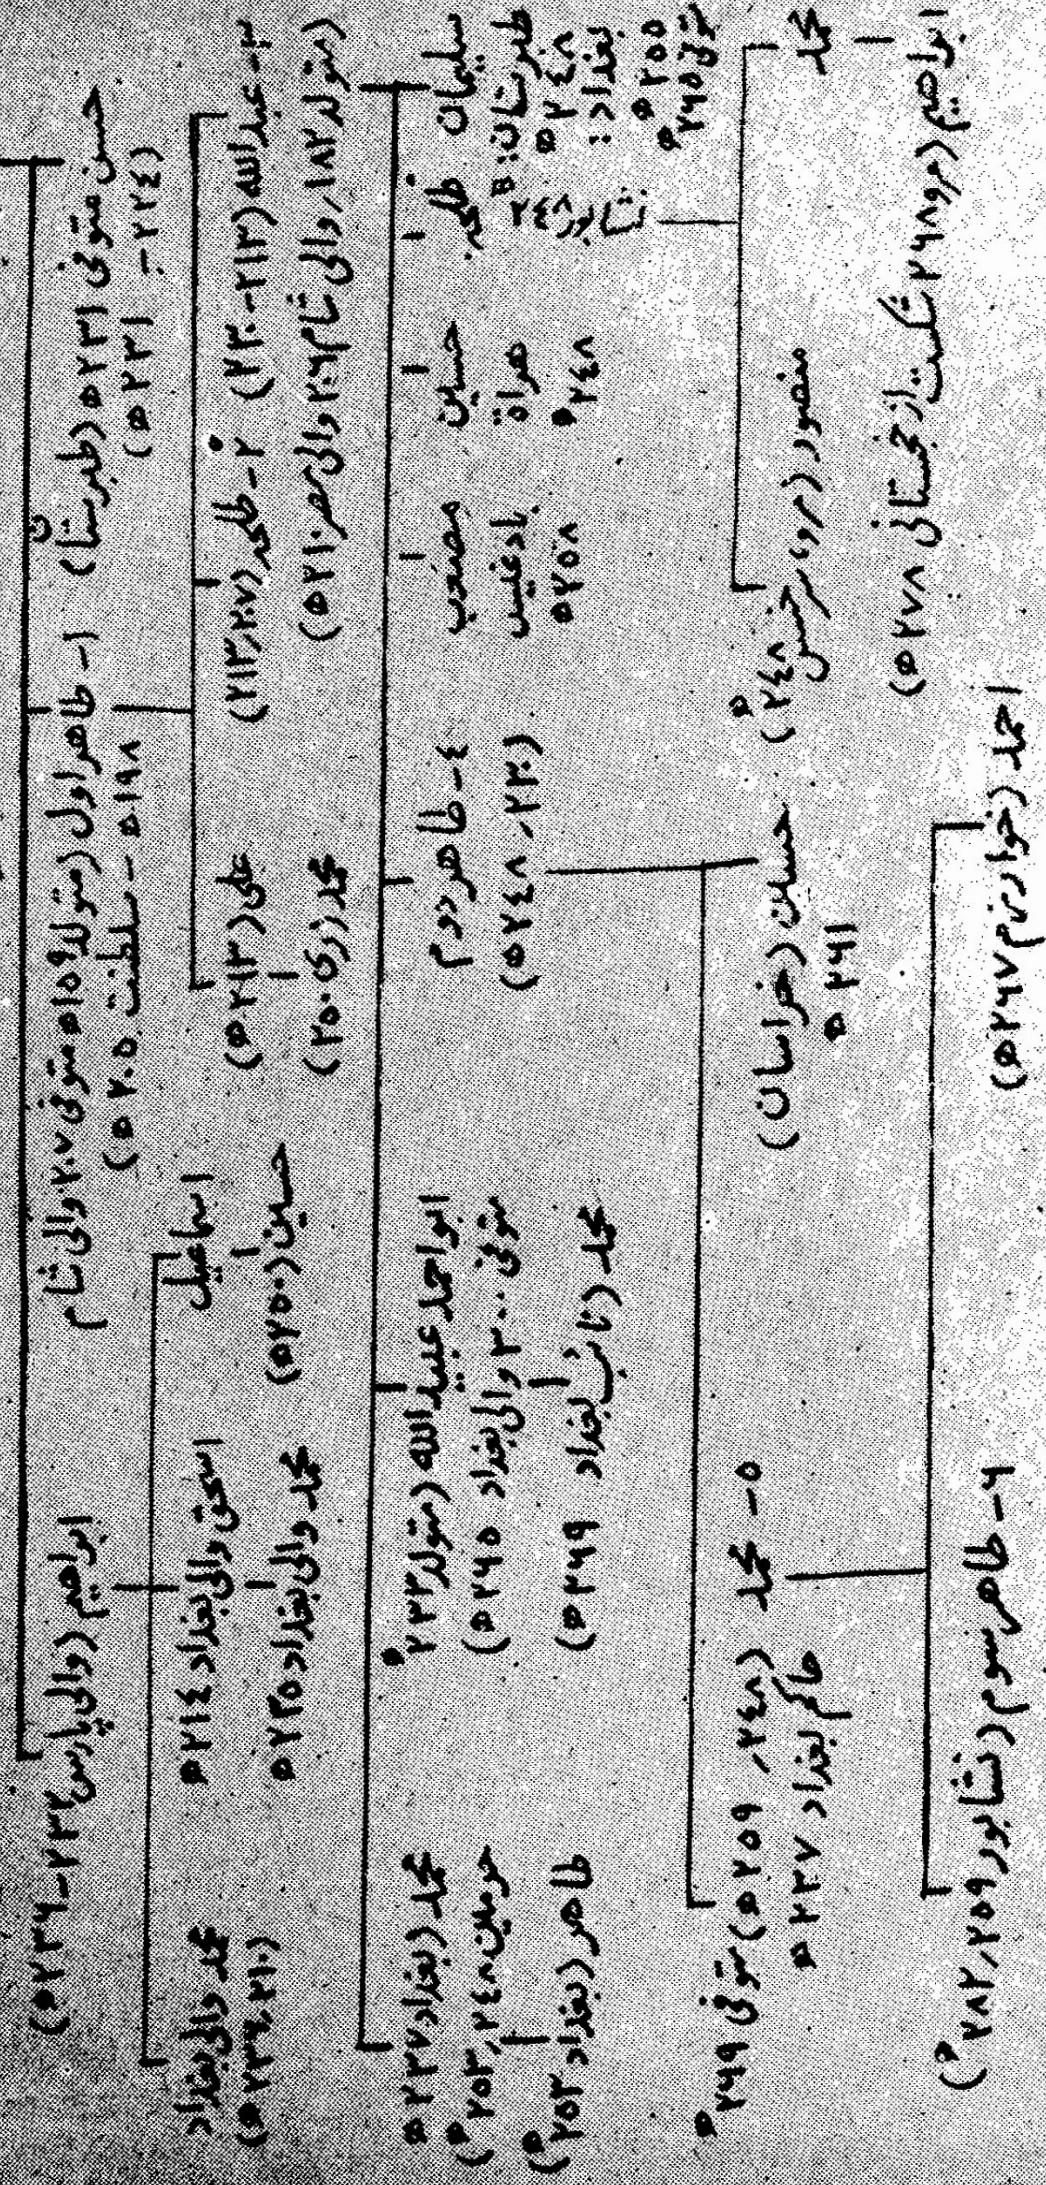 حسن متوفی ۲۳۱ ه (طبرستان)
(۲۲٤ - ۲۳۱ ه)
۱- طاهر اول (متولد ۱۵۹ ه متوفی ۲۰۷ والی شام
۱۹۸ ه - سلطنت ۲۰۵ ه)
ابراهیم (والی پارس ۲۳۲-۲۳۶ ه)
۳- عبدالله (۲۱۳-۲۳۰)
(متولد ۱۸۲، والی شام ۲۰۶ والی مصر ۲۱۰ ه)
۲- طلحه (۲۰۷، ۲۱۳)
علی (۲۱۳ ه)
محمد زری (۲۵۰)
اسماعیل
حسین (۲۵۰ ه)
اسحق والی بغداد ۲۱٤ ه
محمد والی بغداد ۲۳۵ ه
محمد والی بغداد
(۲۱۰، ۲۳۶ ه)
سلیمان
طبرستان:
۲٤۸ ه
بغداد:
۲۵۵ ه
متوفی ۲۶۵ ه
طلحه
نشاپور
حسین
هراة
۲٤۸ ه
مصعب
بادغیس
۲۵۸ ه
٤- طاهر دوم
(۲۳۰، ۲٤۸ ه)
ابو احمد عبیدالله (متولد ۲۲۳ ه
متوفی ۳۰۰ والی بغداد ۲۶۵ ه)
محمد (نائب بغداد ۲۶۹ ه)
محمد (بغداد ۲۳۷ ه
حرمین ۲٤۸، ۲۵۳ ه)
طاهر (بغداد ۲۵۳ ه)
محمد
ابراهیم (مرو ۲۶۸ شکست از خجستانی ۲۷۸ ه)
منصور (مرو، سرخس ۲٤۸ ه)
حسین (خراسان)
۲۶۱ ه
۵- محمد (۲٤۸، ۲۵۹ ه) متوفی ۲۶۹ ه
حاکم بغداد ۲۳۷ ه
احمد (خوارزم ۲۶۷ ه)
۶- طاهر سوم (نشاپور ۲۵۹، ۲۸۲ ه)